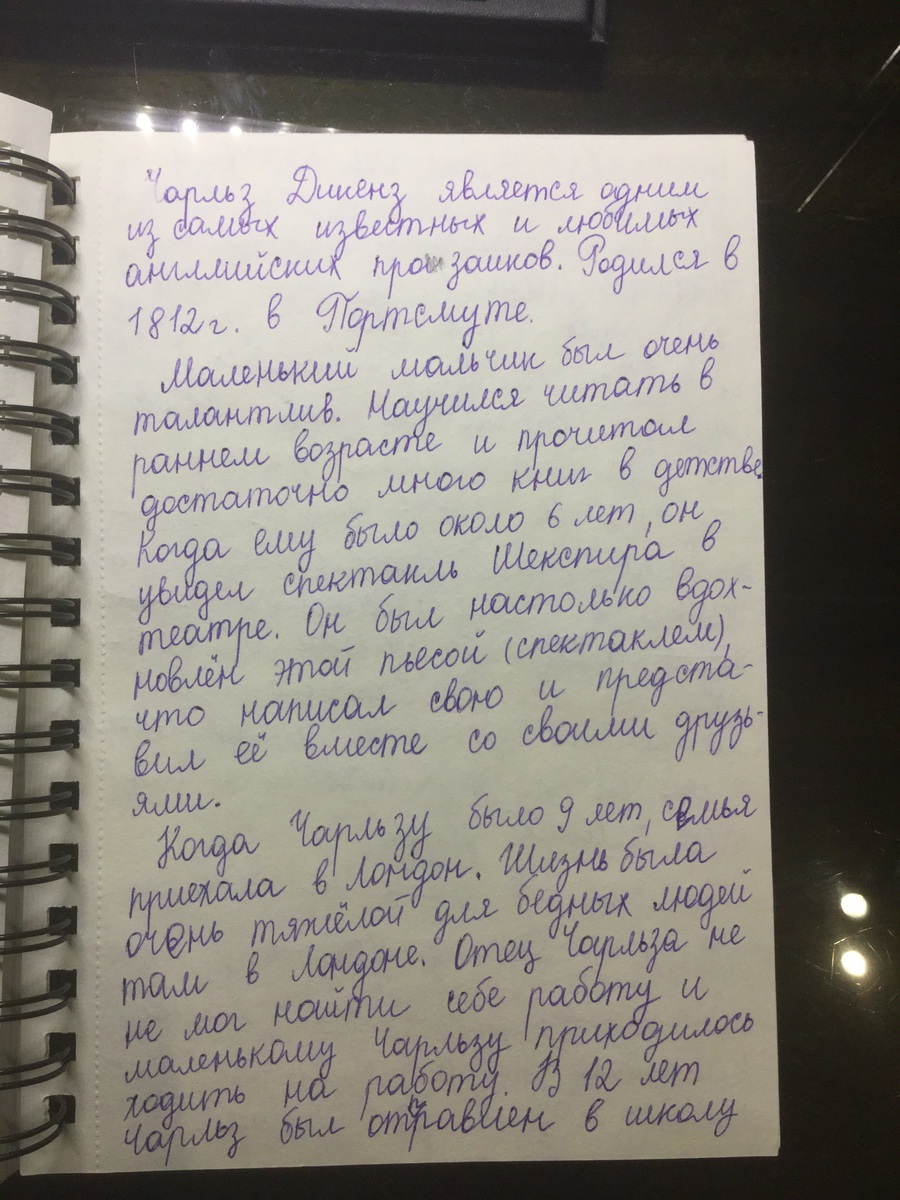 Чарльз Дикенз является одним
из самых известных и любимых
английских прозаиков. Родился в
1812г. в Портсмуте.
Маленький мальчик был очень
талантлив. Научился читать в
раннем возрасте и прочитал
достаточно много книг в детстве.
Когда ему было около 6 лет, он
увидел спектакль Шекспира в
театре. Он был настолько вдох-
новлён этой пьесой (спектаклем),
что написал свою и предста-
вил её вместе со своими друзь-
ями.
Когда Чарльзу было 9 лет, семья
приехала в Лондон. Жизнь была
очень тяжёлой для бедных людей
там в Лондоне. Отец Чарльза не
не мог найти себе работу и
маленькому Чарльзу приходилось
ходить на работу. В 12 лет
Чарльз был отправлен в школу